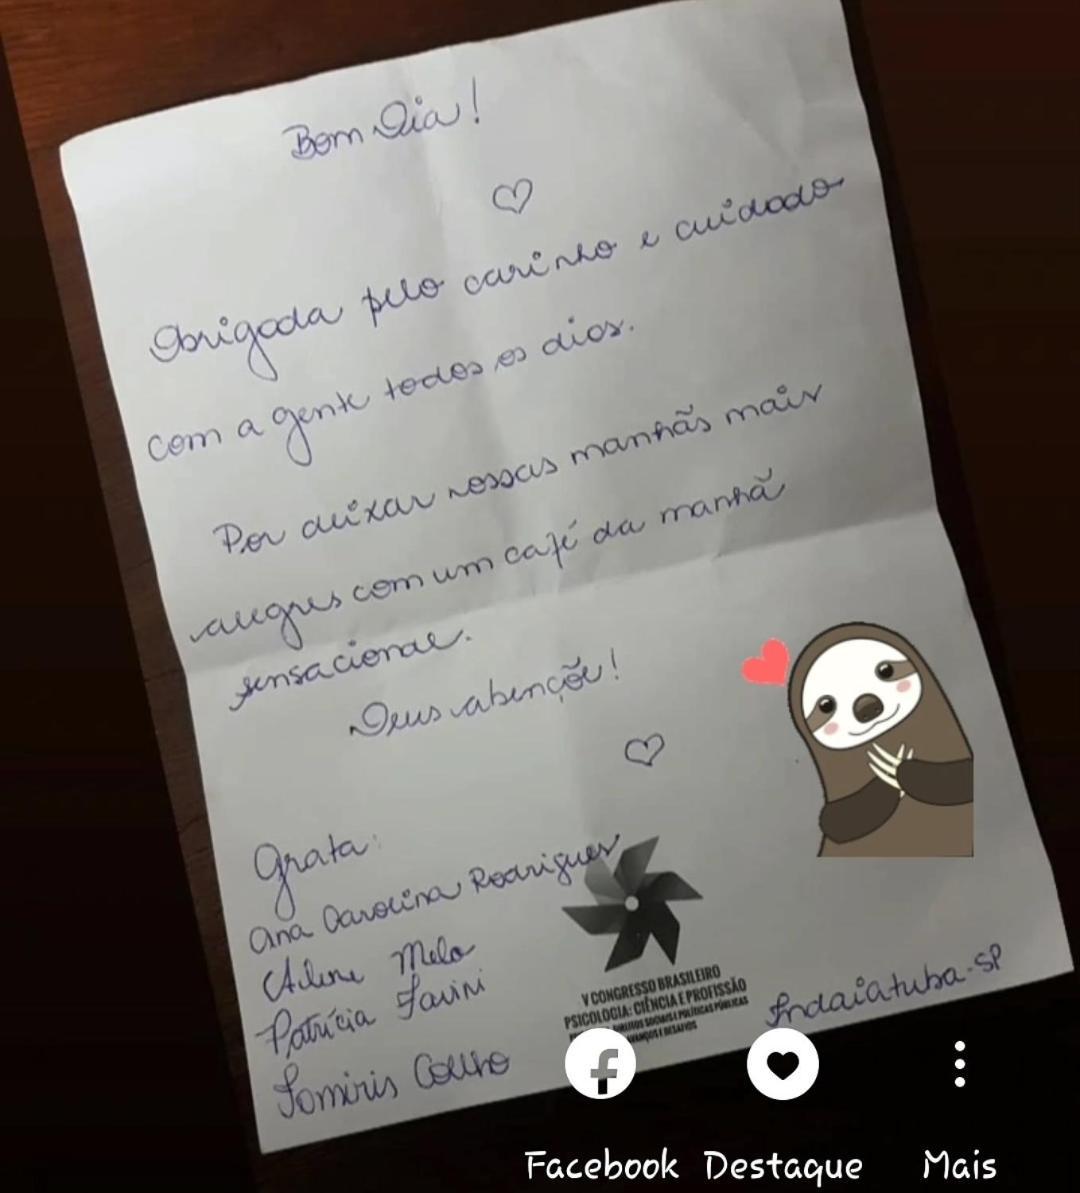 Bom Dia!
Obrigada pelo carinho e cuidado
com a gente todos os dias.
Por deixar nossas manhãs mais
alegres com um café da manhã
sensacional.
Deus abençõe!
Grata:
Ana Carolina Rodrigues
Adene Melo
Patrícia Favini
Tamiris Coelho
V CONGRESSO BRASILEIRO
PSICOLOGIA: CIÊNCIA E PROFISSÃO
DIREITOS SOCIAIS E POLÍTICAS PÚBLICAS
AVANÇOS E DESAFIOS
Indaiatuba-SP
Facebook Destaque Mais